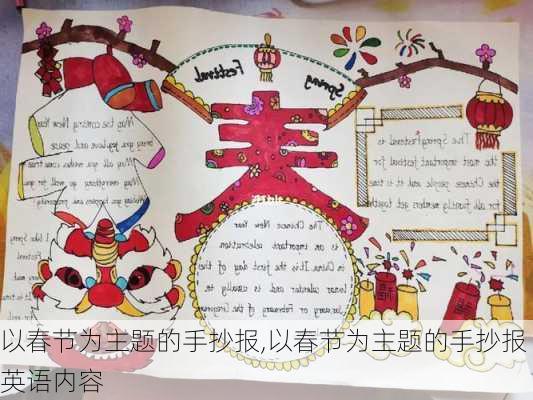 Spring Festival
May the coming New Year
bring you joy, love and peace
May all your wishes come true
and everything go well for you
春
The Spring Festival is
the most important festival for
the Chinese people and it is time
for all family members get together
I like Spring
Festival
The Chinese New Year
is an important
celebration
in China. It is the first day of the
lunar calendar and is usually
January or February of the Gregorian
以春节为主题的手抄报,以春节为主题的手抄报
英语内容